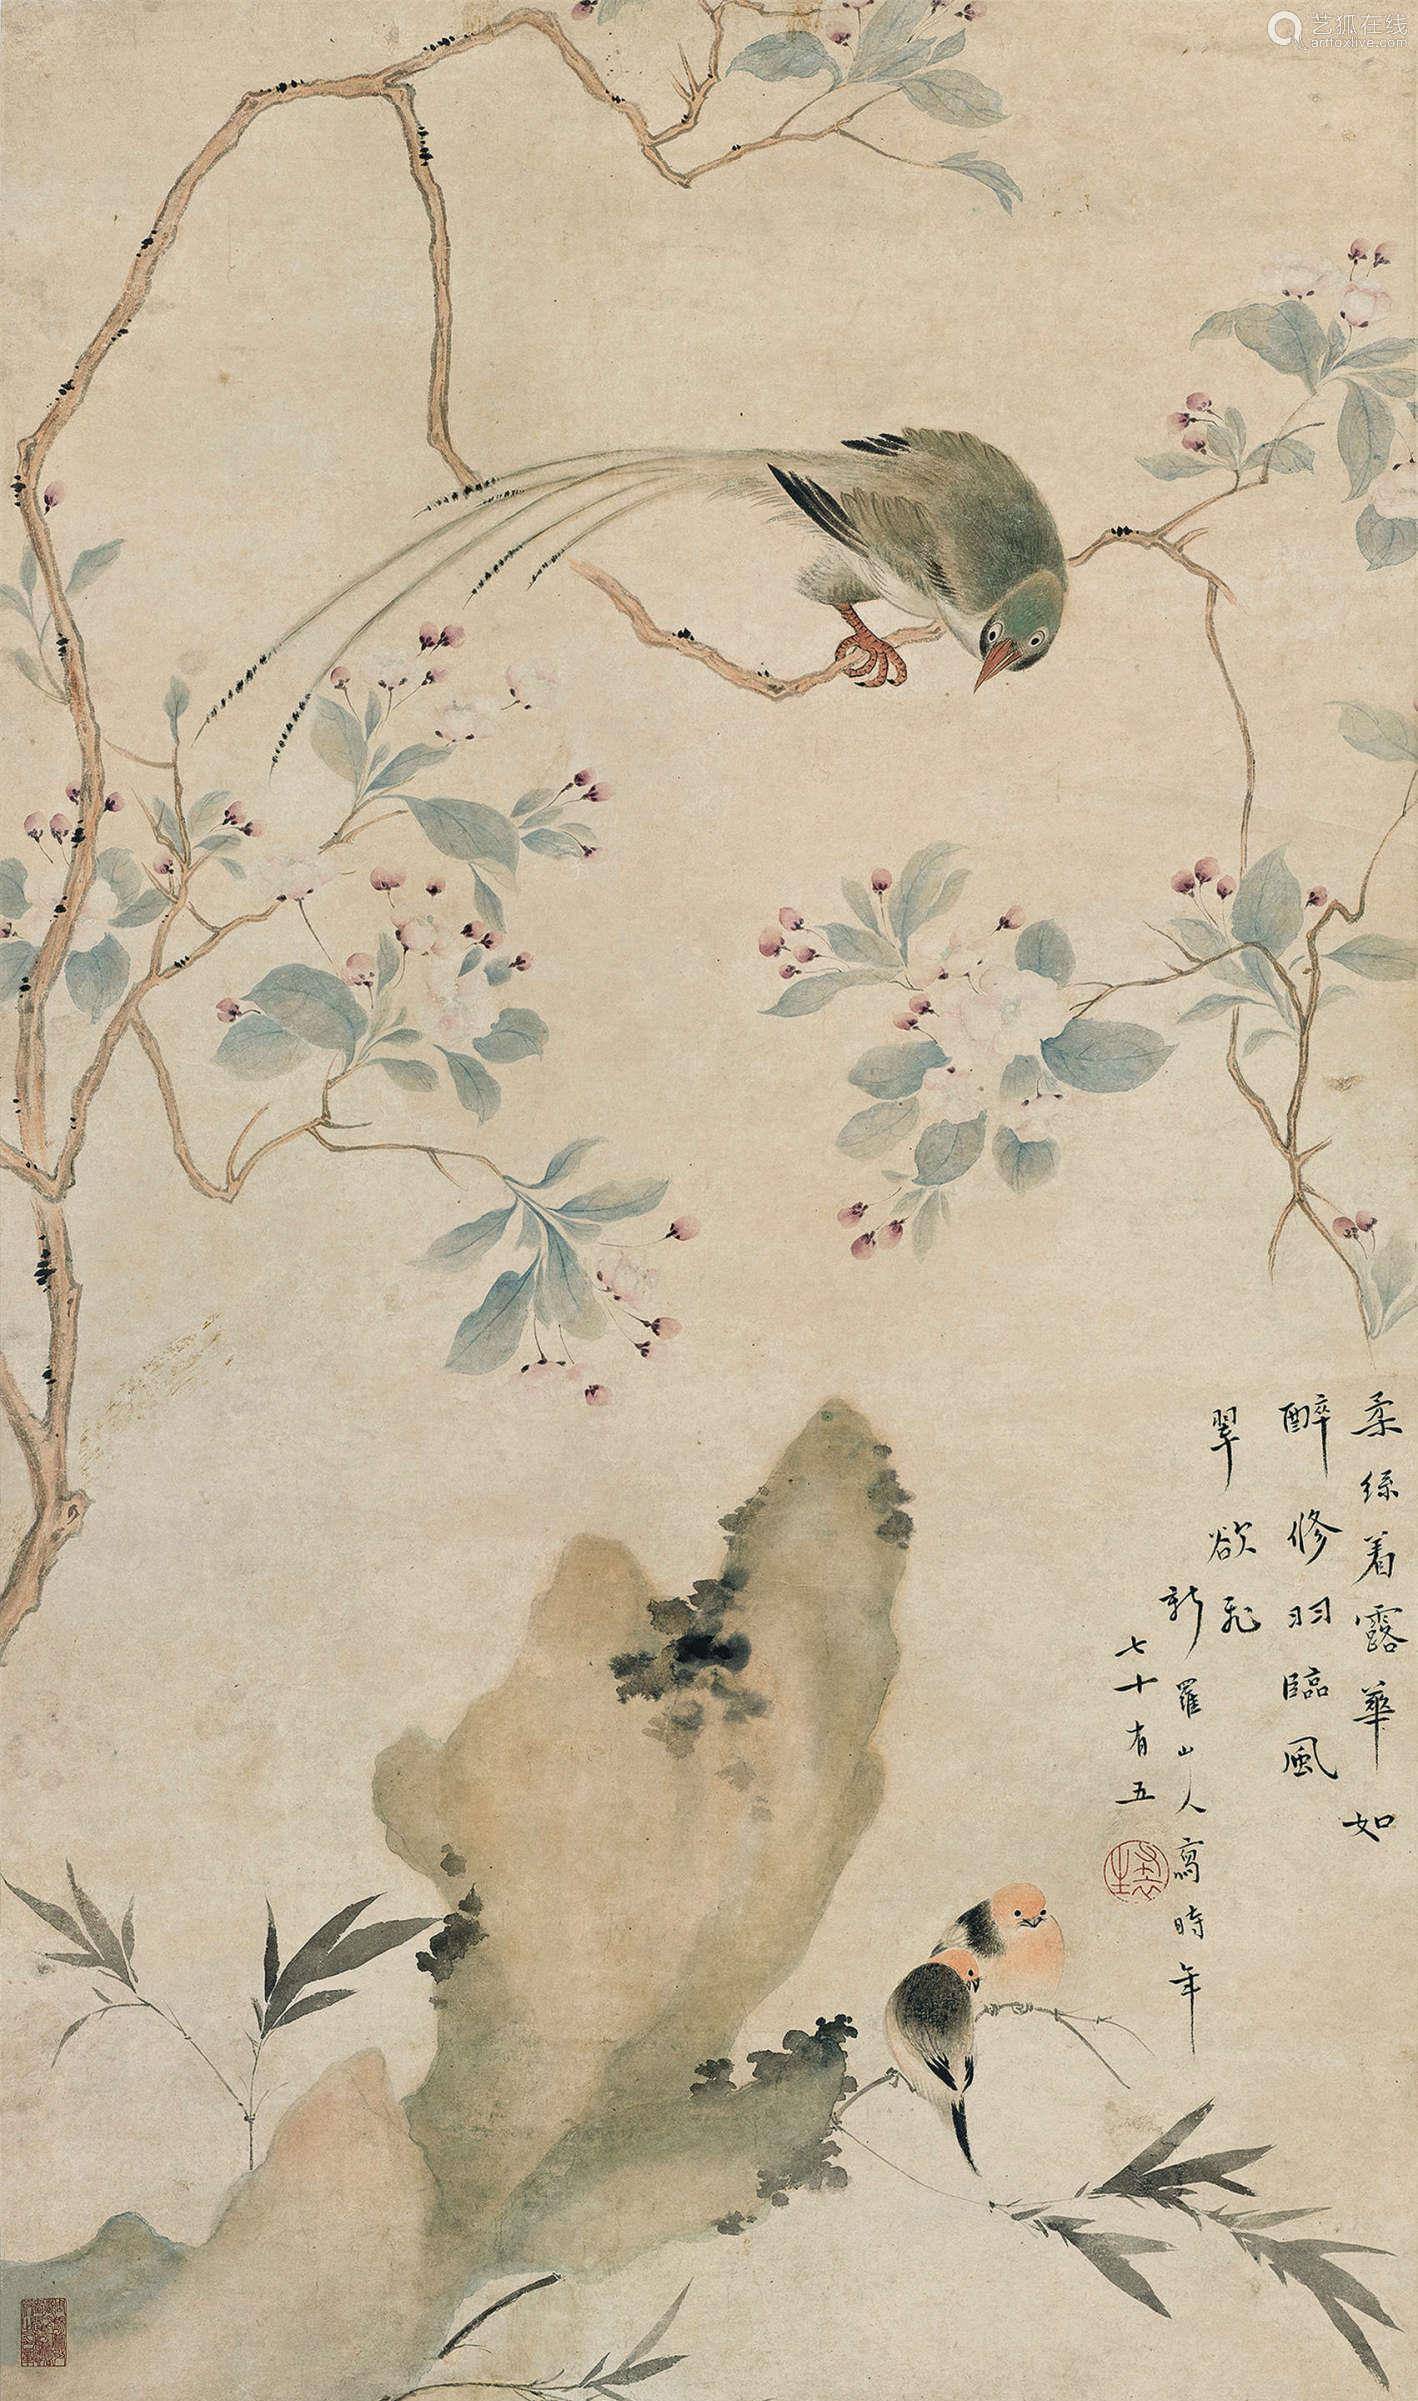 艺狐在线
artfoxlive.com
柔絲着露華如
醉修羽臨風
翠欲飛
新羅山人寫時年
七十有五